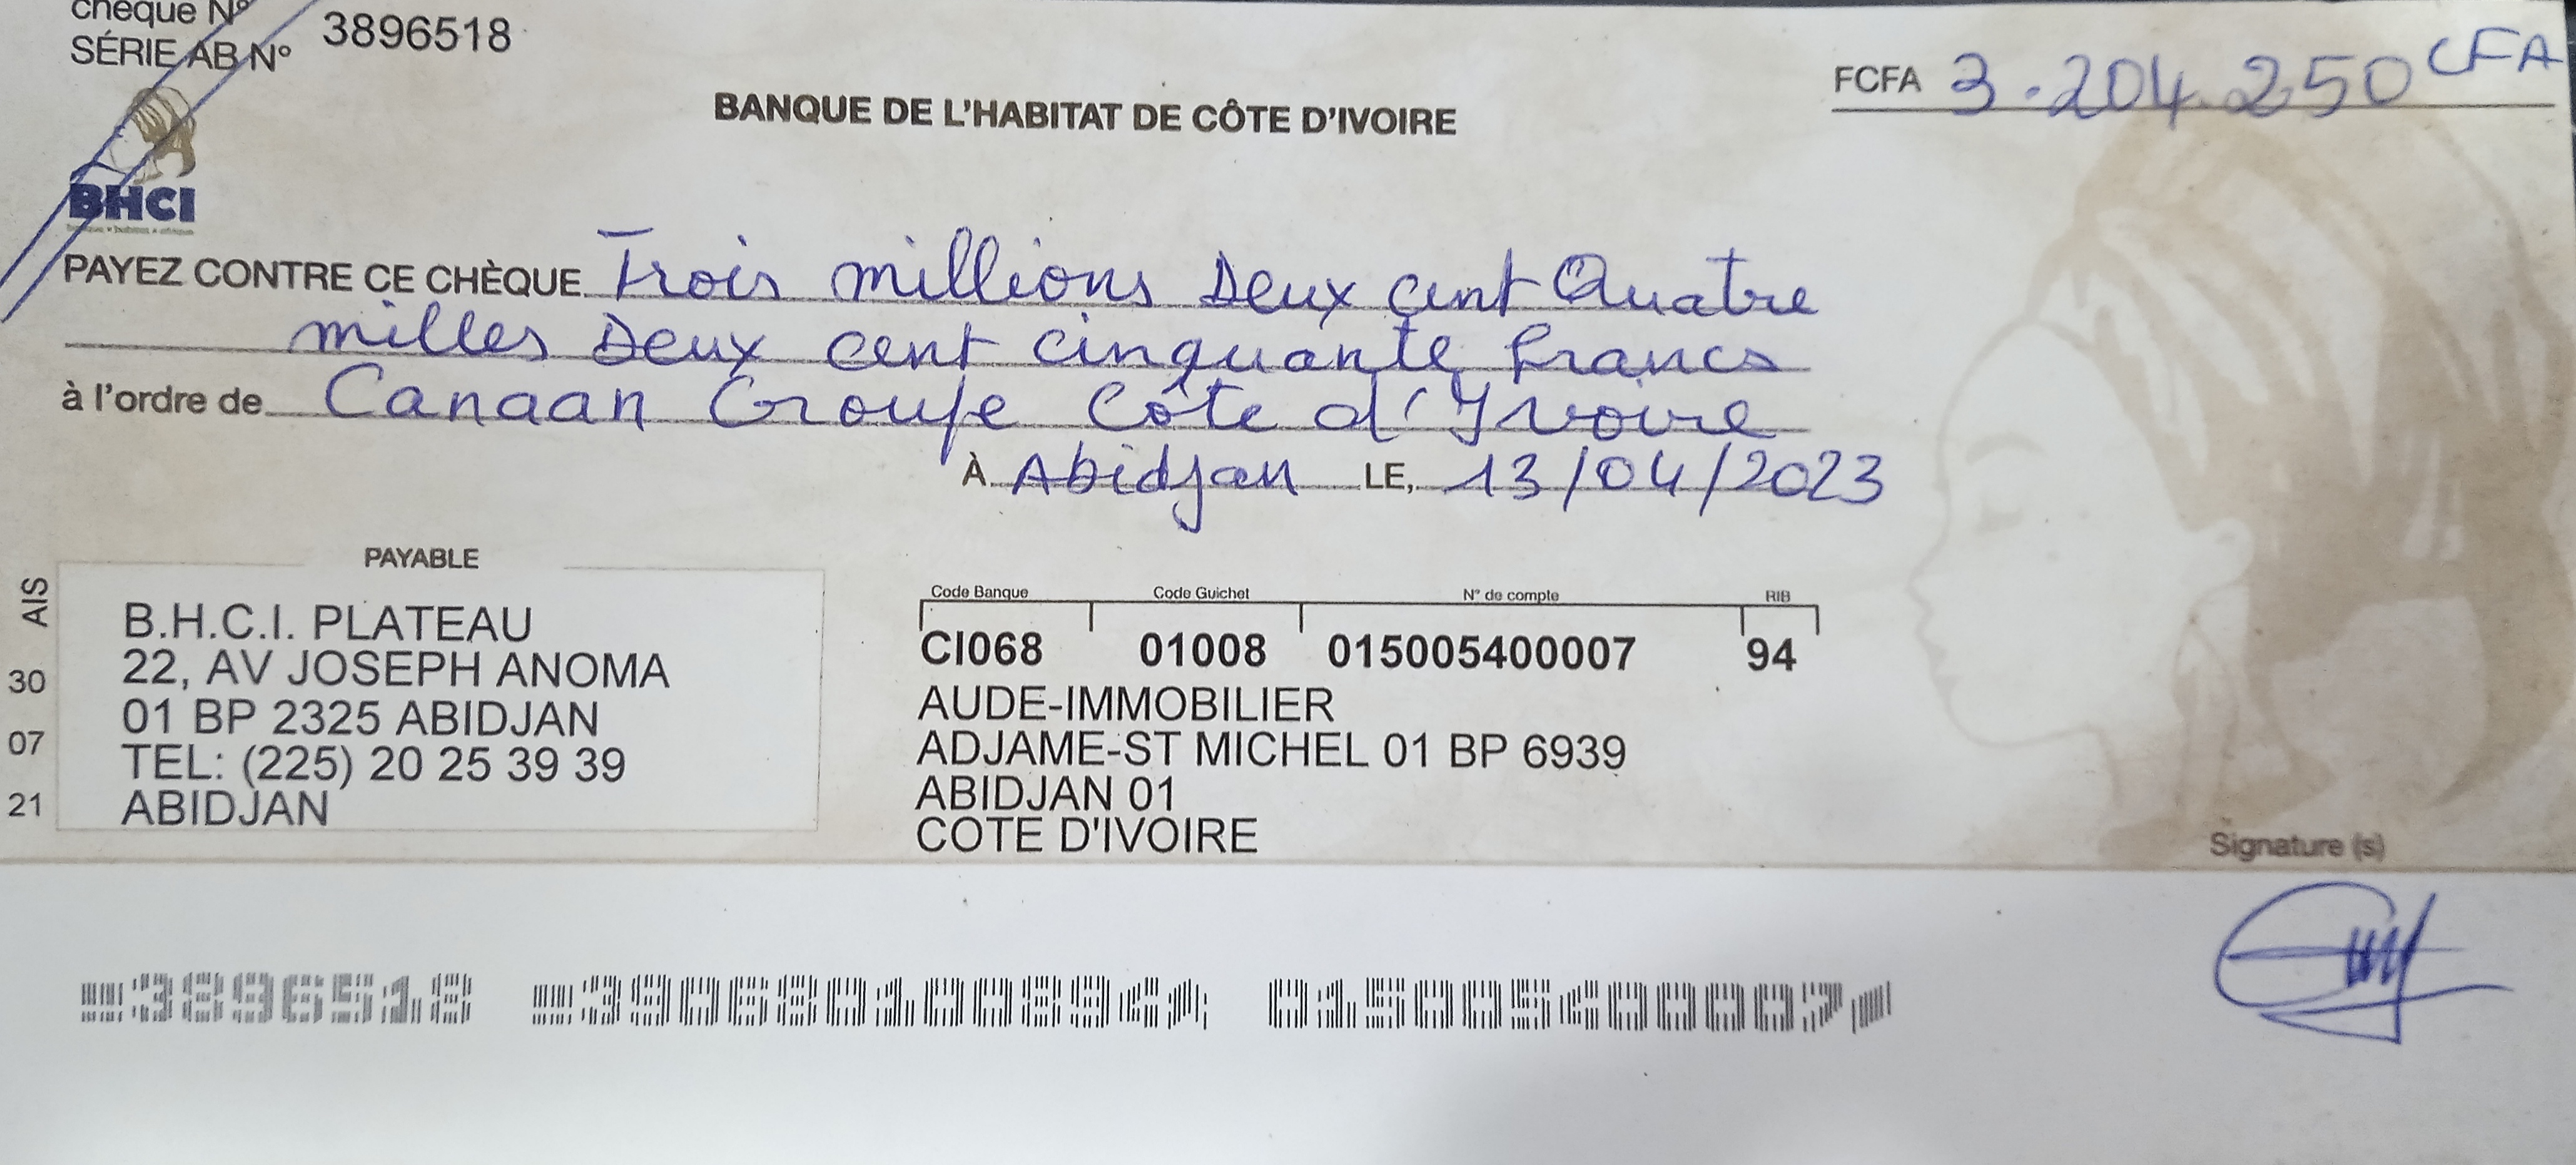 chèque N°
SÉRIE AB N° 3896518
FCFA 3.204.250 CFA
BANQUE DE L'HABITAT DE CÔTE D'IVOIRE
BHCI
PAYEZ CONTRE CE CHÈQUE Trois millions Deux cent Quatre
milles Deux cent cinquante francs
à l'ordre de Canaan Groupe Côte d'Ivoire
À Abidjan LE, 13/04/2023
PAYABLE
B.H.C.I. PLATEAU
22, AV JOSEPH ANOMA
01 BP 2325 ABIDJAN
TEL: (225) 20 25 39 39
ABIDJAN
AIS
30
07
21
Code Banque Code Guichet N° de compte RIB
CI068 01008 015005400007 94
AUDE-IMMOBILIER
ADJAME-ST MICHEL 01 BP 6939
ABIDJAN 01
COTE D'IVOIRE
Signature (s)
3896518 390680100894 015005400007